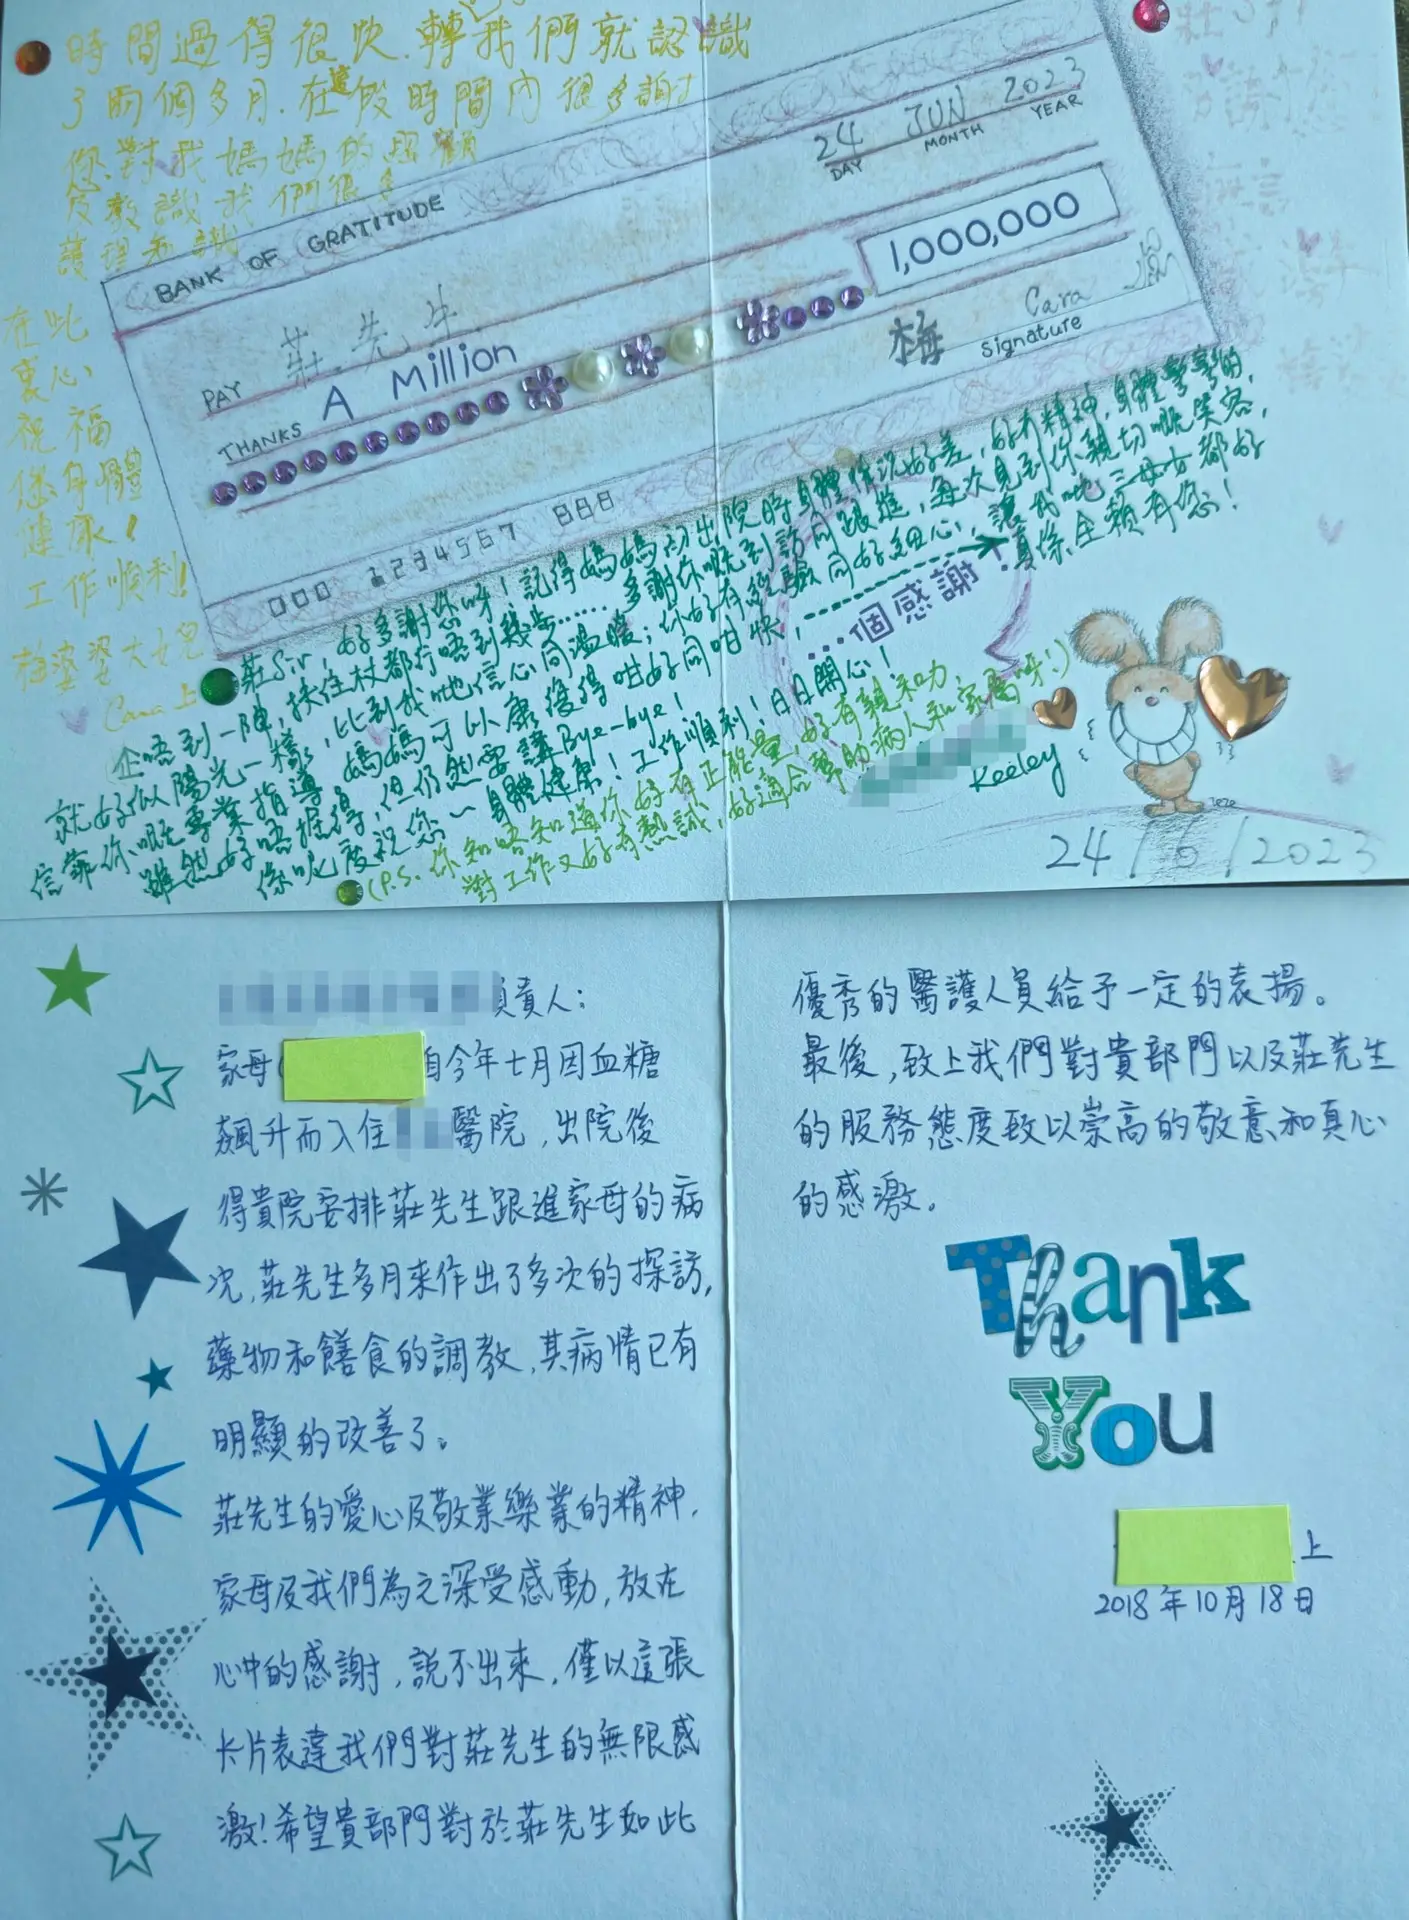 時間過得很快.轉我們就認識
了兩個多月.在這段時間內很多謝
您對我媽媽的照顧
及教識我們很多
護理知識
在此
衷心
祝福
您身體
健康!
工作順利!
梅婆婆大女兒
Cara上
BANK OF GRATITUDE
24 JUN 2023
DAY MONTH YEAR
PAY 莊先生
1,000,000
THANKS A Million
梅 Cara
Signature
000 1234567 888
莊Sir, 好多謝您呀! 記得媽媽初出院時身體情況好差,
企唔到一陣, 扶住杖都行唔到幾步...... 多謝你嘅到訪同跟進, 每次見到你親切嘅笑容,
就好似陽光一樣, 比到我哋信心同溫暖; 你好有經驗同好細心, 讓我哋三母女都好
信靠你嘅專業指導 媽媽可以康復得咁好同咁快, 真係全賴有您!
雖然好唔捨得, 但仍然要講Bye-bye!
係呢度祝您一身體健康! 工作順利! 日日開心!
...個感謝!
(P.S. 你知唔知道你好有正能量, 好有親和力,
對工作又好有熱誠, 好適合幫助病人和家屬呀!)
Keeley
24/6/2023
負責人:
家母 自今年七月因血糖
飆升而入住 醫院, 出院後
得貴院安排莊先生跟進家母的病
況, 莊先生多月來作出了多次的探訪,
藥物和饍食的調教, 其病情已有
明顯的改善了。
莊先生的愛心及敬業樂業的精神,
家母及我們為之深受感動, 放在
心中的感謝, 說不出來, 僅以這張
卡片表達我們對莊先生的無限感
激! 希望貴部門對於莊先生如此
優秀的醫護人員給予一定的表揚。
最後, 致上我們對貴部門以及莊先生
的服務態度致以崇高的敬意和真心
的感激。
Thank
You
上
2018年10月18日